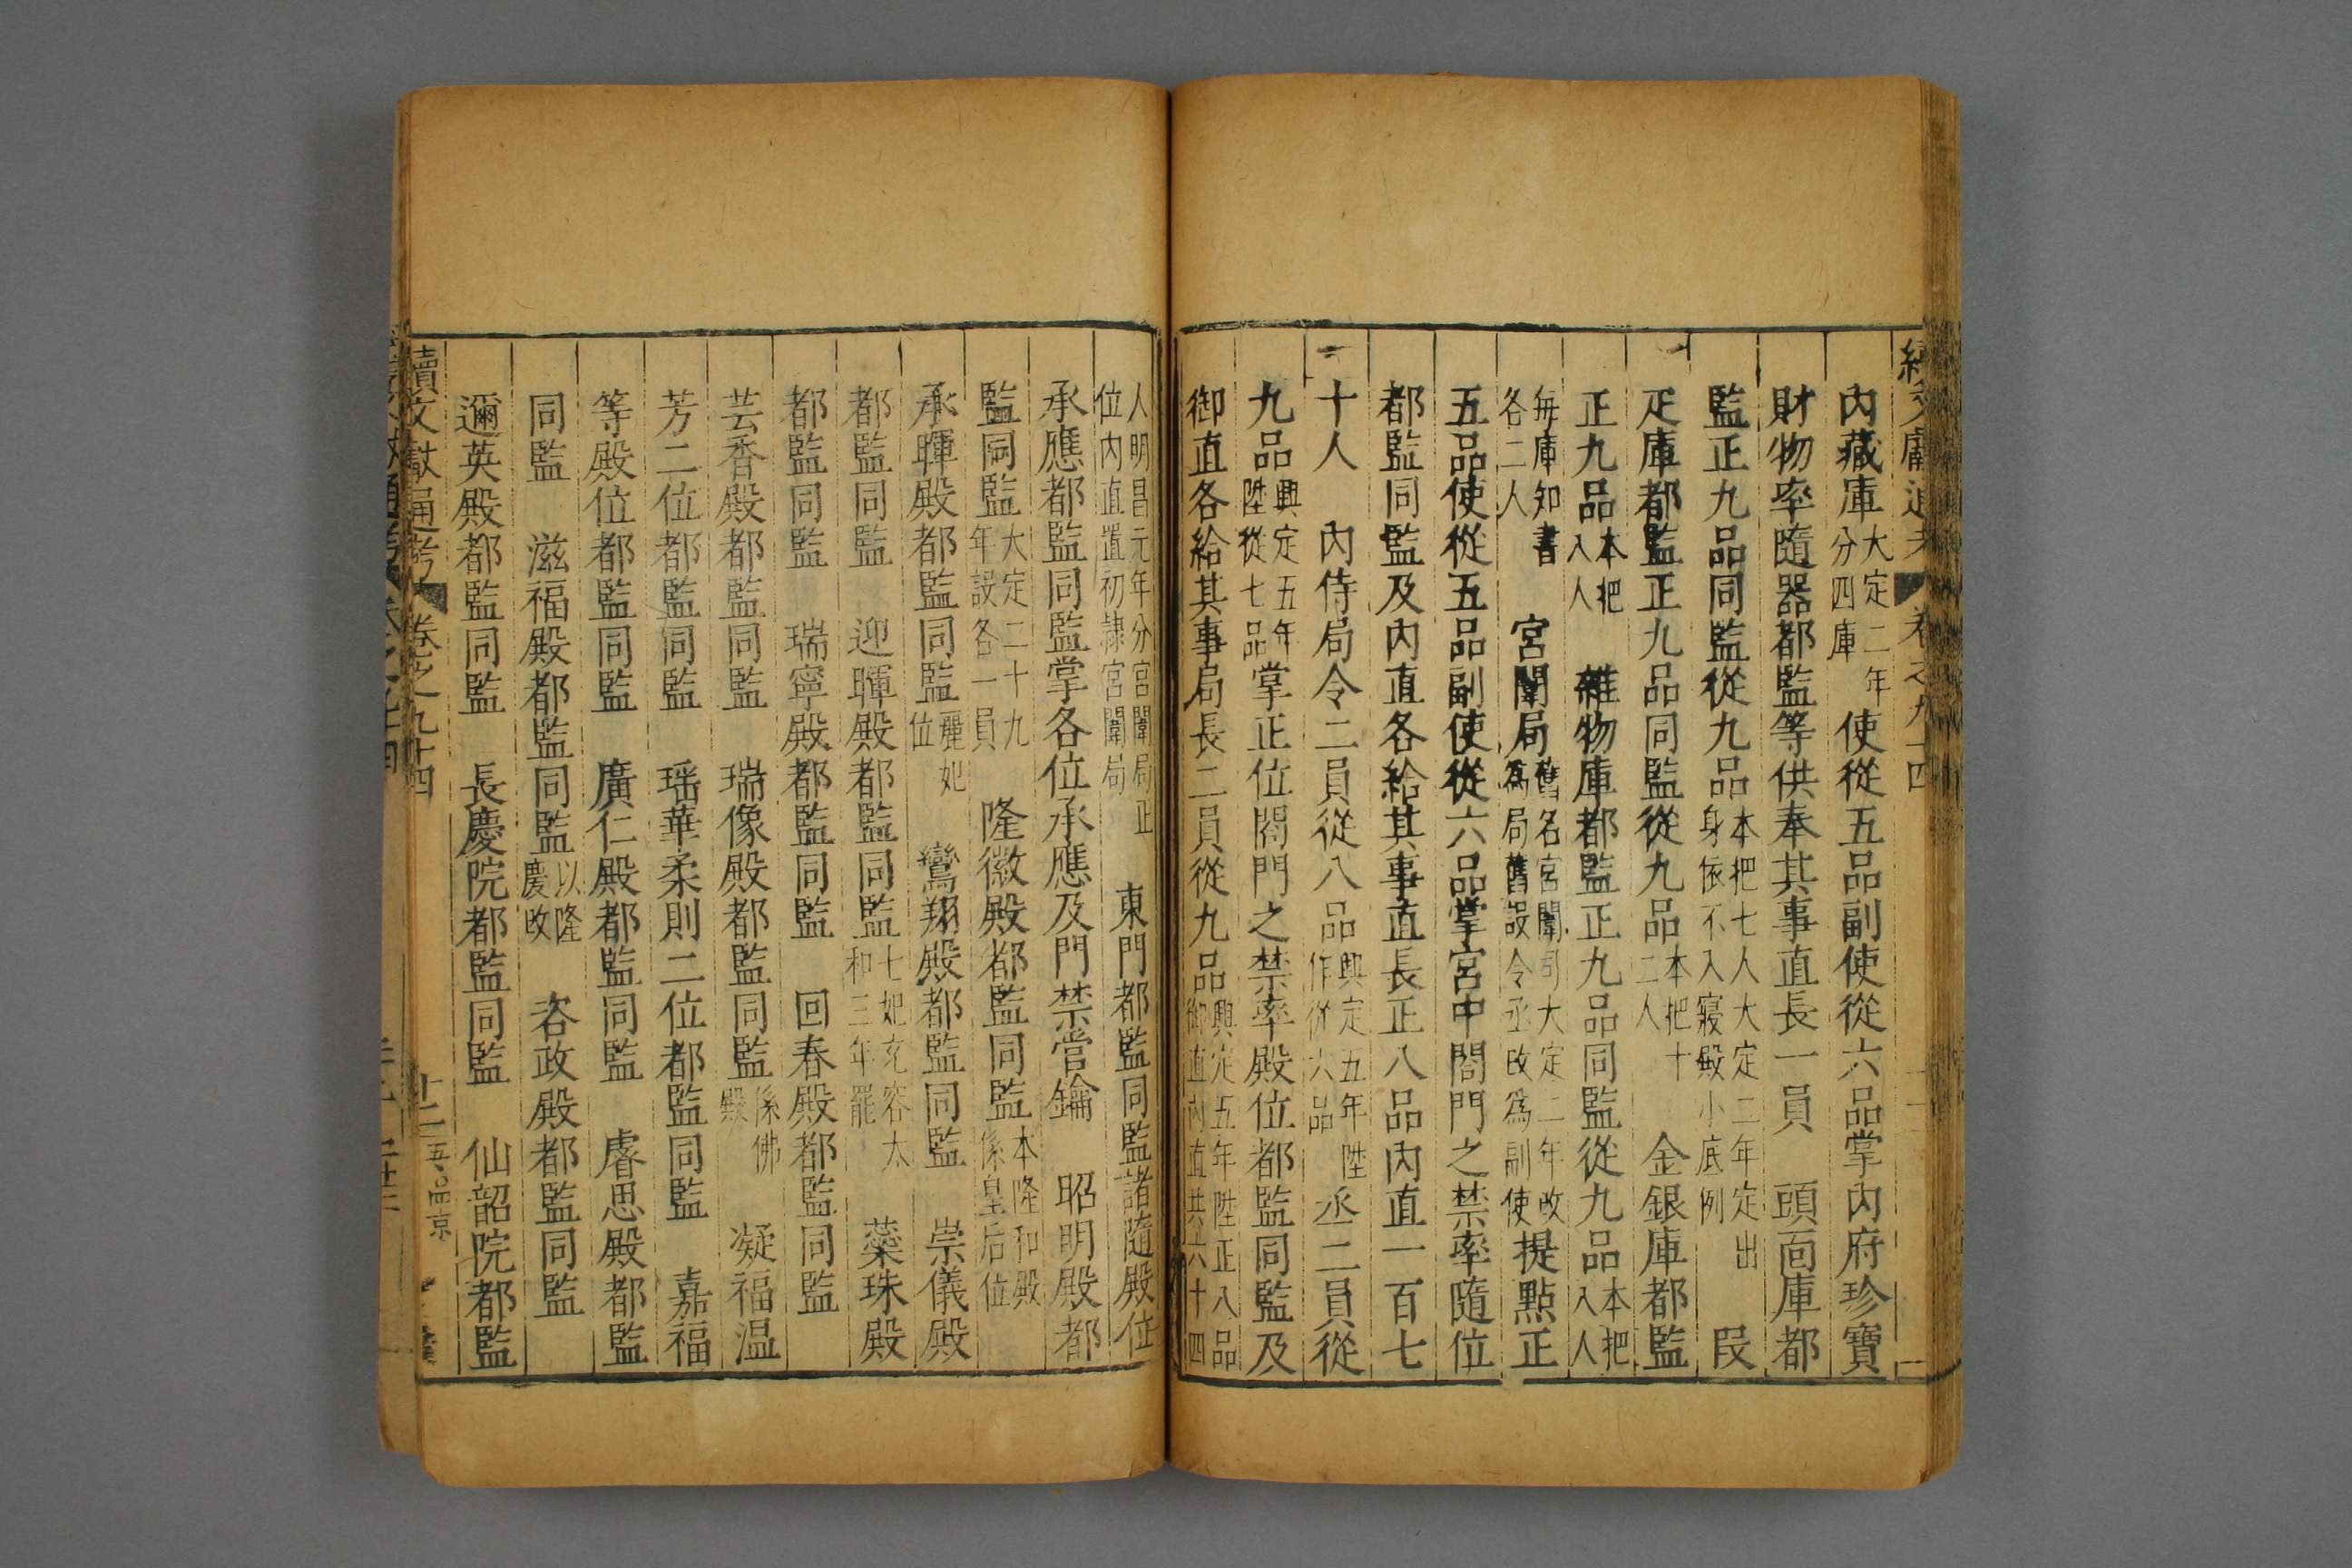 續文獻通考 卷之九十四
內藏庫大定二年分四庫使從五品副使從六品掌內府珍寶
財物率隨器都監等供奉其事直長一員 頭面庫都
監正九品同監從九品本把七人大定二年定出身依不入寢殿小底例 叚
疋庫都監正九品同監從九品本把十二人 金銀庫都監
正九品本把八人 雜物庫都監正九品同監從九品本把八人
每庫知書各二人 宮闈局舊名宮闈司大定二年改為局舊設令丞改為副使提點正
五品使從五品副使從六品掌宮中閤門之禁率隨位
都監同監及內直各給其事直長正八品內直一百七
十人 內侍局令二員從八品興定五年陞作從六品丞二員從
九品興定五年陞從七品掌正位閤門之禁率殿位都監同監及
御直各給其事局長二員從九品興定五年陞正八品御直內直共六十四
人明昌元年分宮闈局正位內直置初隸宮闈局 東門都監同監諸隨殿位
承應都監同監掌各位承應及門禁管鑰 昭明殿都
監同監大定二十九年設各一員 隆徽殿都監同監本隆和殿係皇后位
承暉殿都監同監麗妃位 鸞翔殿都監同監 崇儀殿
都監同監 迎暉殿都監同監七妃充容太和三年罷 蘂珠殿
都監同監 瑞寧殿都監同監 回春殿都監同監
芸香殿都監同監 瑞像殿都監同監係佛殿 凝福温
芳二位都監同監 瑶華柔則二位都監同監 嘉福
等殿位都監同監 廣仁殿都監同監 睿思殿都監
同監 滋福殿都監同監以隆慶改 咨政殿都監同監
邇英殿都監同監 長慶院都監同監 仙韶院都監
續文獻通考 卷之九十四 十二